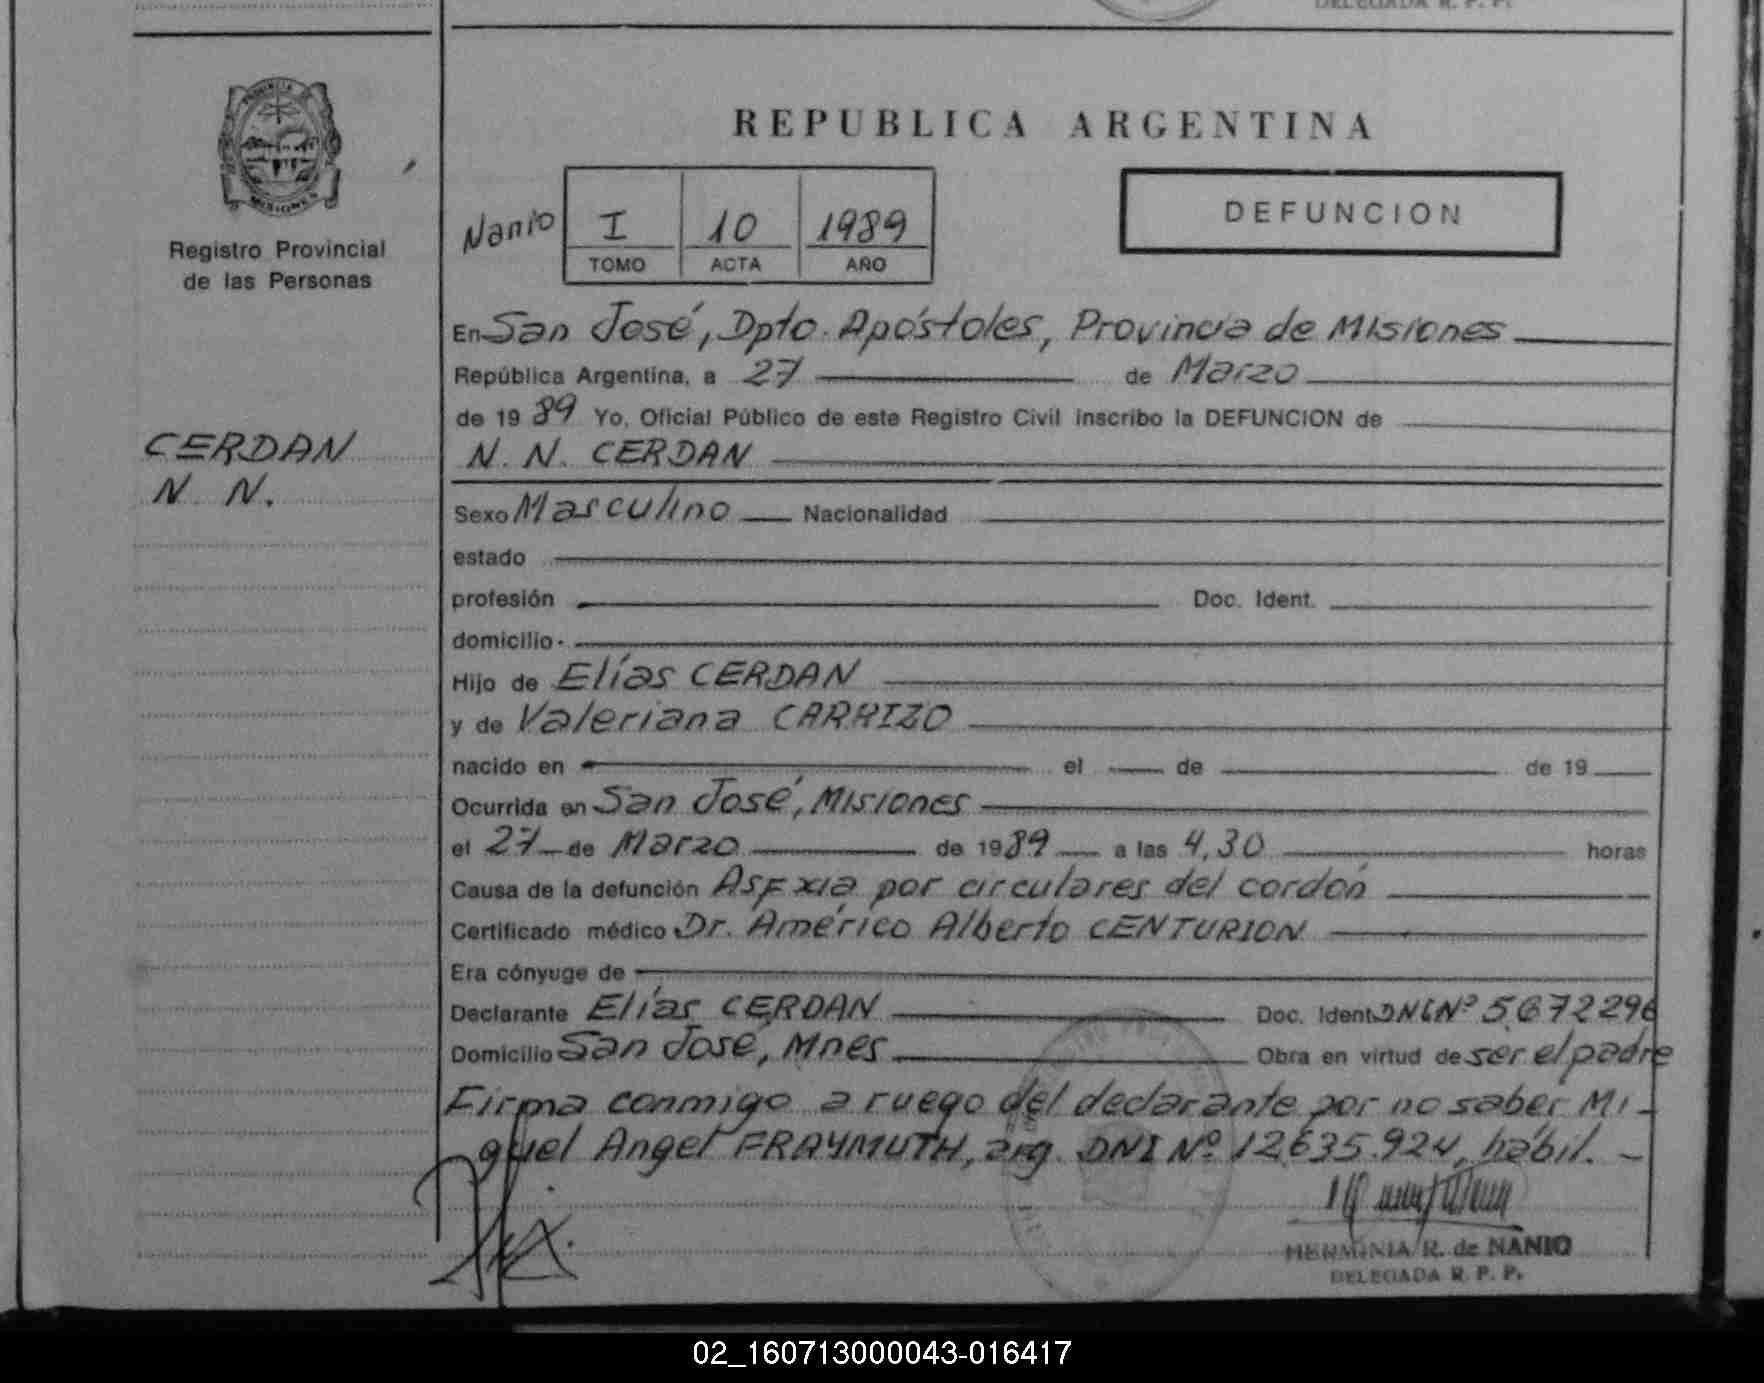 DELEGADA R. P. P.
PROVINCIA
MISIONES
Registro Provincial
de las Personas
CERDAN
N. N.
REPUBLICA ARGENTINA
Nanio
I 10 1989
TOMO ACTA AÑO
DEFUNCION
En San José, Dpto. Apóstoles, Provincia de Misiones
República Argentina, a 27 de Marzo
de 1989 Yo, Oficial Público de este Registro Civil inscribo la DEFUNCION de
N. N. CERDAN
Sexo Masculino Nacionalidad
estado
profesión Doc. Ident.
domicilio
Hijo de Elías CERDAN
y de Valeriana CARRIZO
nacido en el de de 19
Ocurrida en San José, Misiones
el 27 de Marzo de 1989 a las 4,30 horas
Causa de la defunción Asfixia por circulares del cordón
Certificado médico Dr. Américo Alberto CENTURION
Era cónyuge de
Declarante Elías CERDAN Doc. Ident. DNI Nº 5.672296
Domicilio San José, Mnes Obra en virtud de ser el padre
Firma conmigo a ruego del declarante por no saber Mi-
guel Angel FRAYMUTH, arg. DNI Nº 12.635.924, hábil. -
HERMINIA R. de NANIO
DELEGADA R. P. P.
02_160713000043-016417